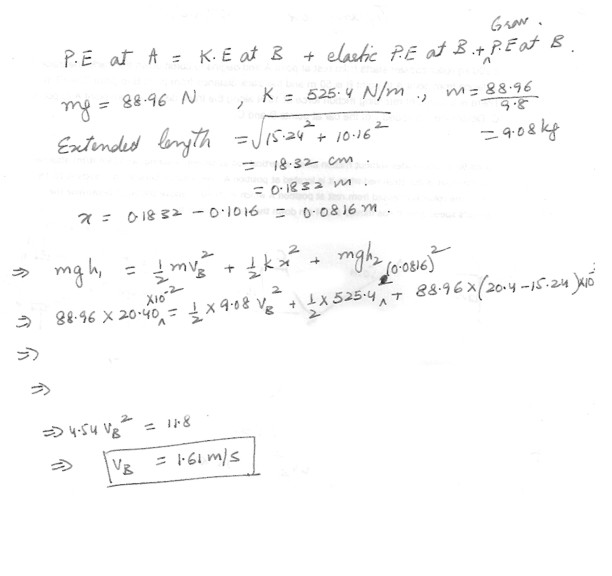 P.E at A = K.E at B + elastic P.E at B. + Grav. P.E at B.
mg = 88.96 N , K = 525.4 N/m ., m = 88.96/9.8
Extended length = √15.24² + 10.16² = 9.08 kg
= 18.32 cm .
= 0.1832 m .
x = 0.1832 - 0.1016 = 0.0816 m .
⇒ mgh₁ = ½ mv_B² + ½ kx² + mgh₂
⇒ 88.96 × 20.40 × 10⁻² = ½ × 9.08 V_B² + ½ × 525.4 (0.0816)² + 88.96 × (20.4 - 15.24) × 10
⇒
⇒
⇒ 4.54 V_B² = 11.8
⇒ V_B = 1.61 m/s